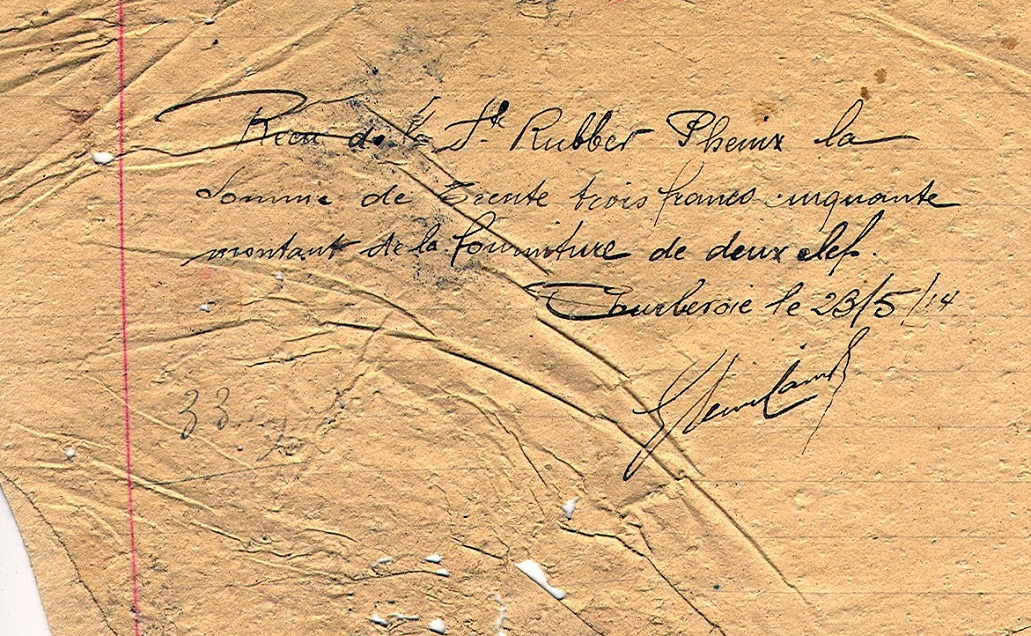 Recu de la Sté Rubber Phenix la
Somme de Trente trois francs cinquante
montant de la fourniture de deux clef.
Courbevoie le 23/5/14
33